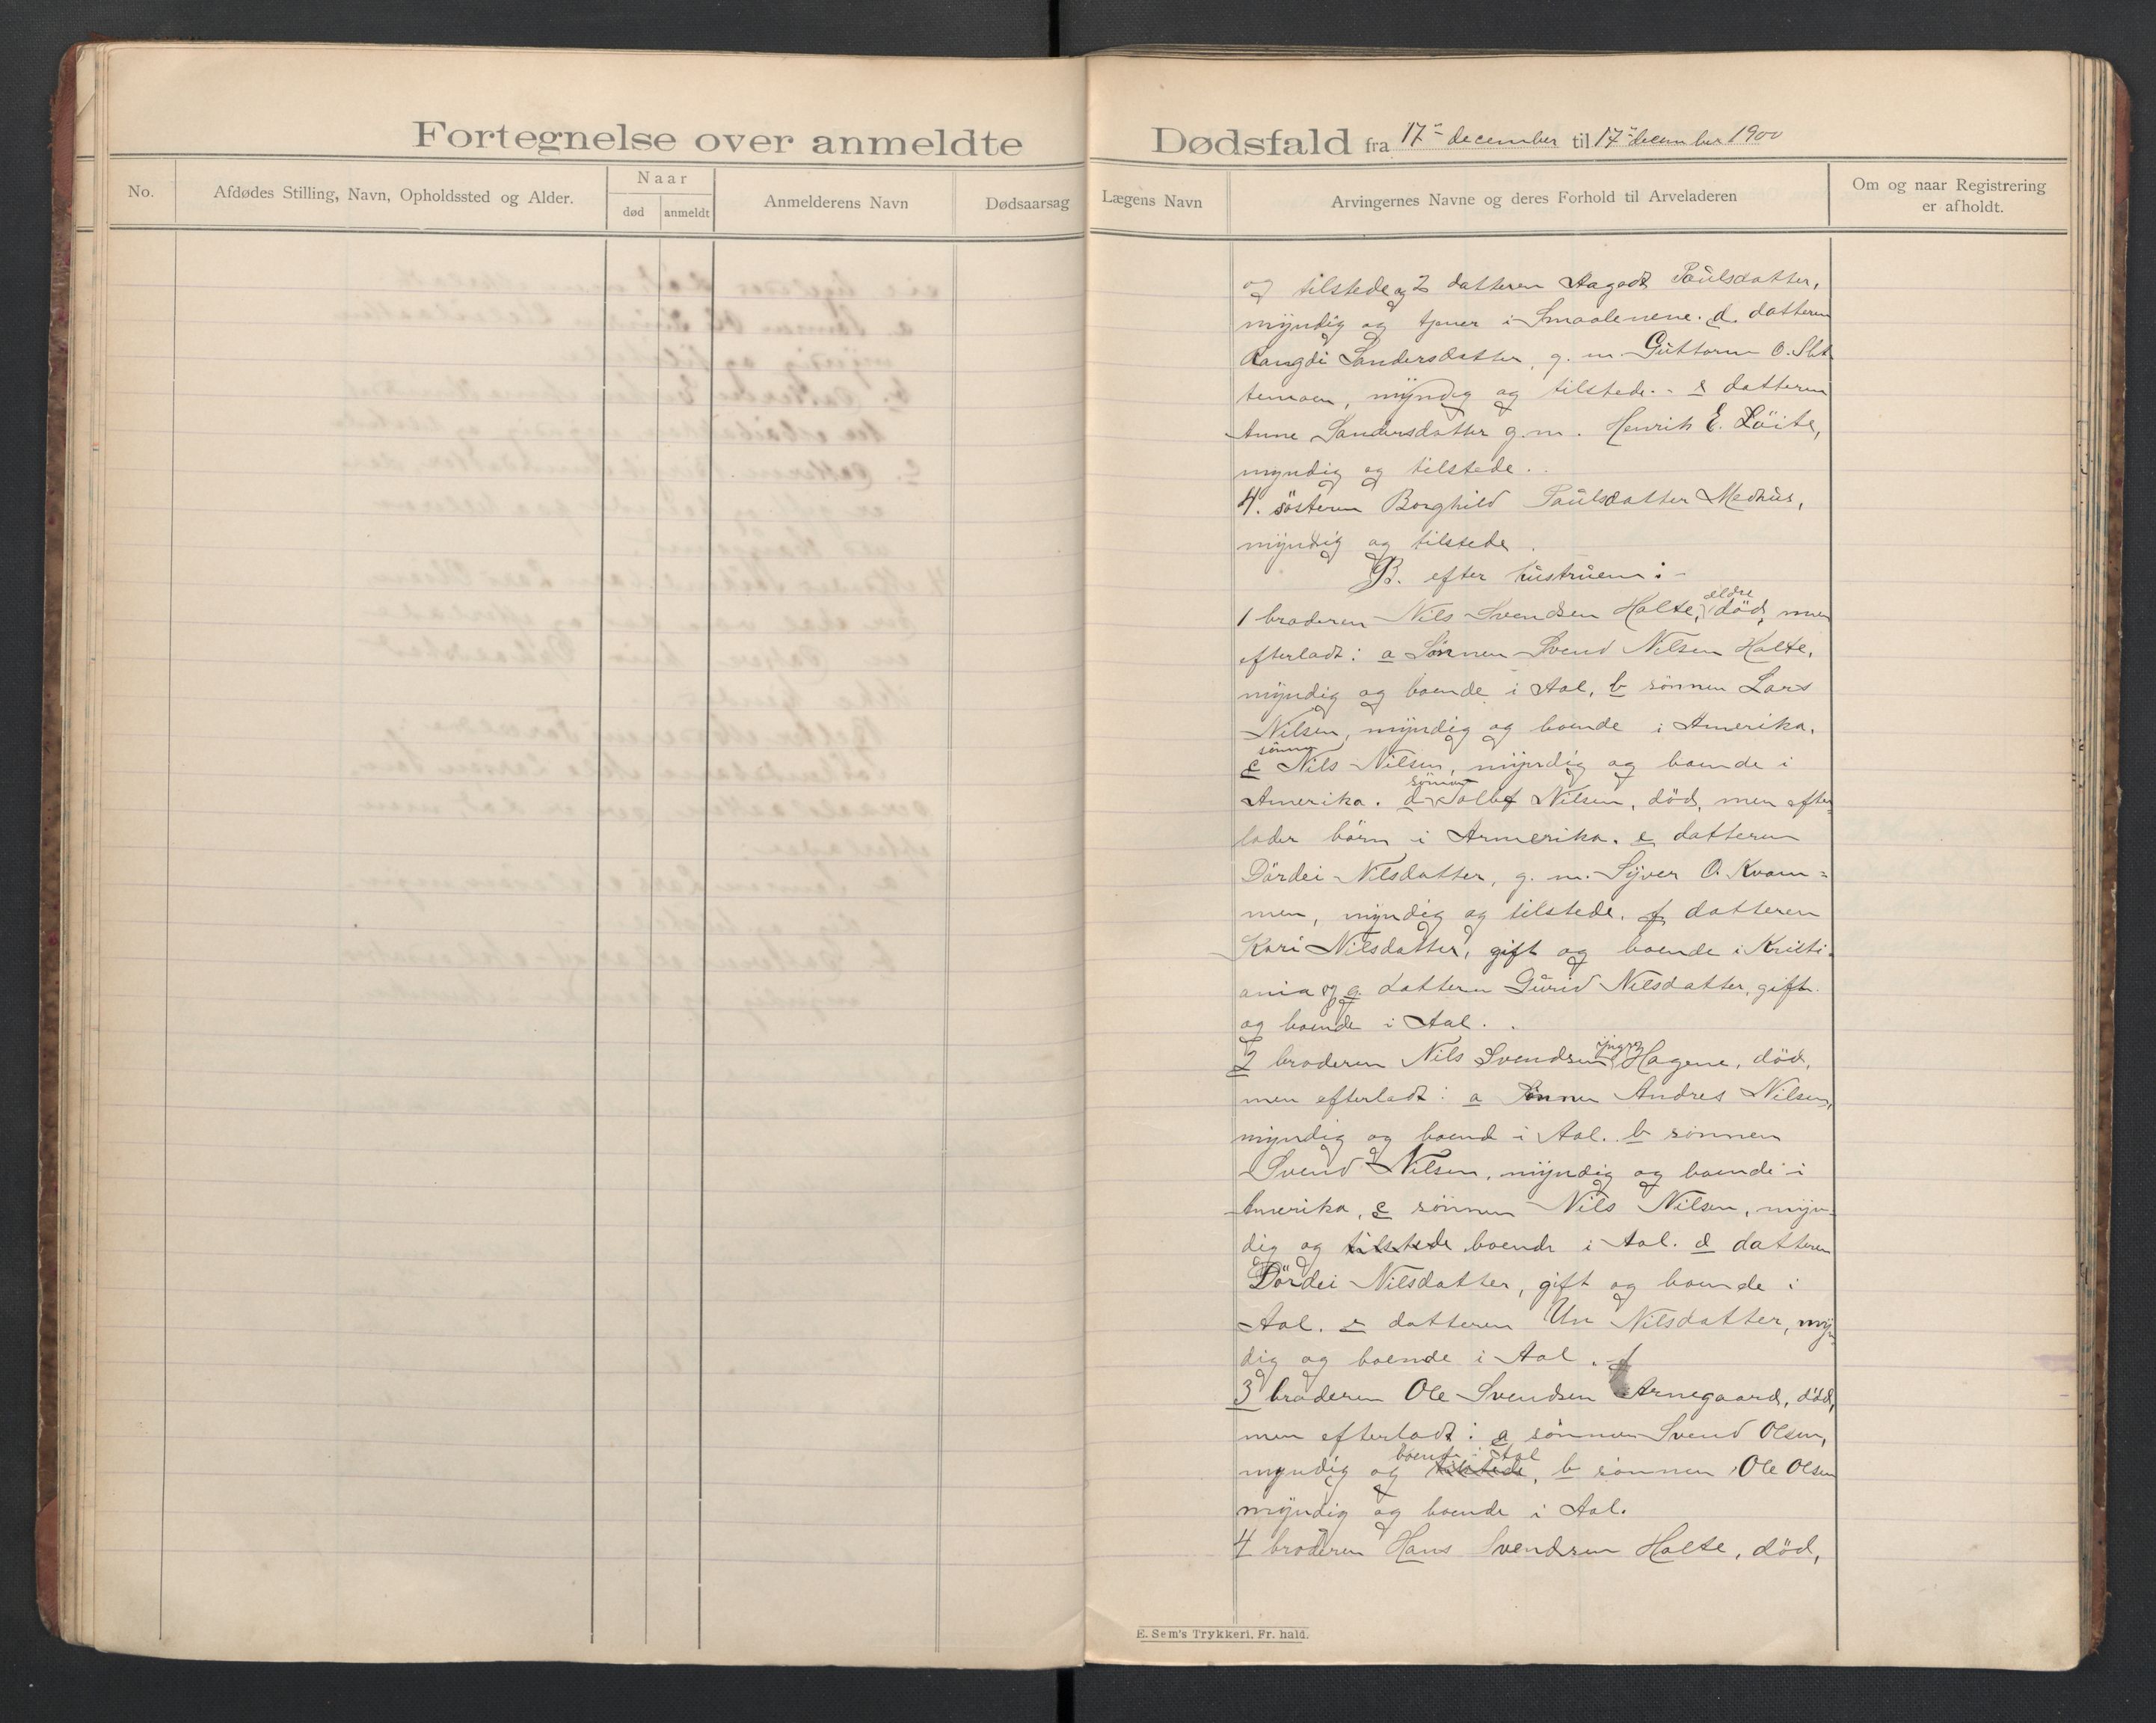 Fortegnelse over anmeldte Dødsfald fra 17' december til 17' december 1900
No.
Afdødes Stilling, Navn, Opholdssted og Alder.
Naar
død
anmeldt
Anmelderens Navn
Dødsaarsag
Lægens Navn
Arvingernes Navne og deres Forhold til Arveladeren
Om og naar Registrering
er afholdt.
og tilstede og 2 datteren Aagodt Paulsdatter,
myndig og tjener i Smaalenene. d. datteren
Rangdi Sandersdatter, g. m. Guttorm O. Slet
temoen, myndig og tilstede. - e datteren
Anne Sandersdatter g. m. Henrik E. Löite,
myndig og tilstede.
4. søsteren Borghild Paulsdatter Medhus,
myndig og tilstede.
B. efter hustruen: -
ældre
1 broderen Nils Svendsen Holte, död, men
efterladt: a Sönnen Svend Nilsen Holte,
myndig og boende i Aal, b sönnen Lars
Nilsen, myndig og boende i Amerika.
sönnen
c Nils Nilsen, myndig og boende i
sönnen
Amerika. d Tollef Nilsen, död, men efter-
lader börn i Armerika. e datteren
Dördei Nilsdatter, g. m. Syver O. Kvam=
men, myndig og tilstede. f datteren
Kari Nilsdatter, gift og boende i Kristi-
ania og g. datteren Gurid Nilsdatter, gift
og boende i Aal.
yngre
2 broderen Nils Svendsen Hagene, död,
men efterladt: a Sönnen Andres Nilsen,
myndig og boend i Aal. b sönnen
Svend Nilsen, myndig og boende i
Amerika, c sönnen Nils Nilsen, myn-
dig og tilstede boende i Aal. d datteren
Dördei Nilsdatter, gift og boende i
Aal. e datteren Un Nilsdatter, myn-
dig og boende i Aal. f
3 broderen Ole Svendsen Arnegaard, död,
men efterladt: a sönnen Svend Olsen,
boende i Aal
myndig og tilstede, b sönnen Ole Olsen
myndig og boende i Aal.
4 broderen Hans Svendsen Holte, död,
E. Sem's Trykkeri, Fr. hald.